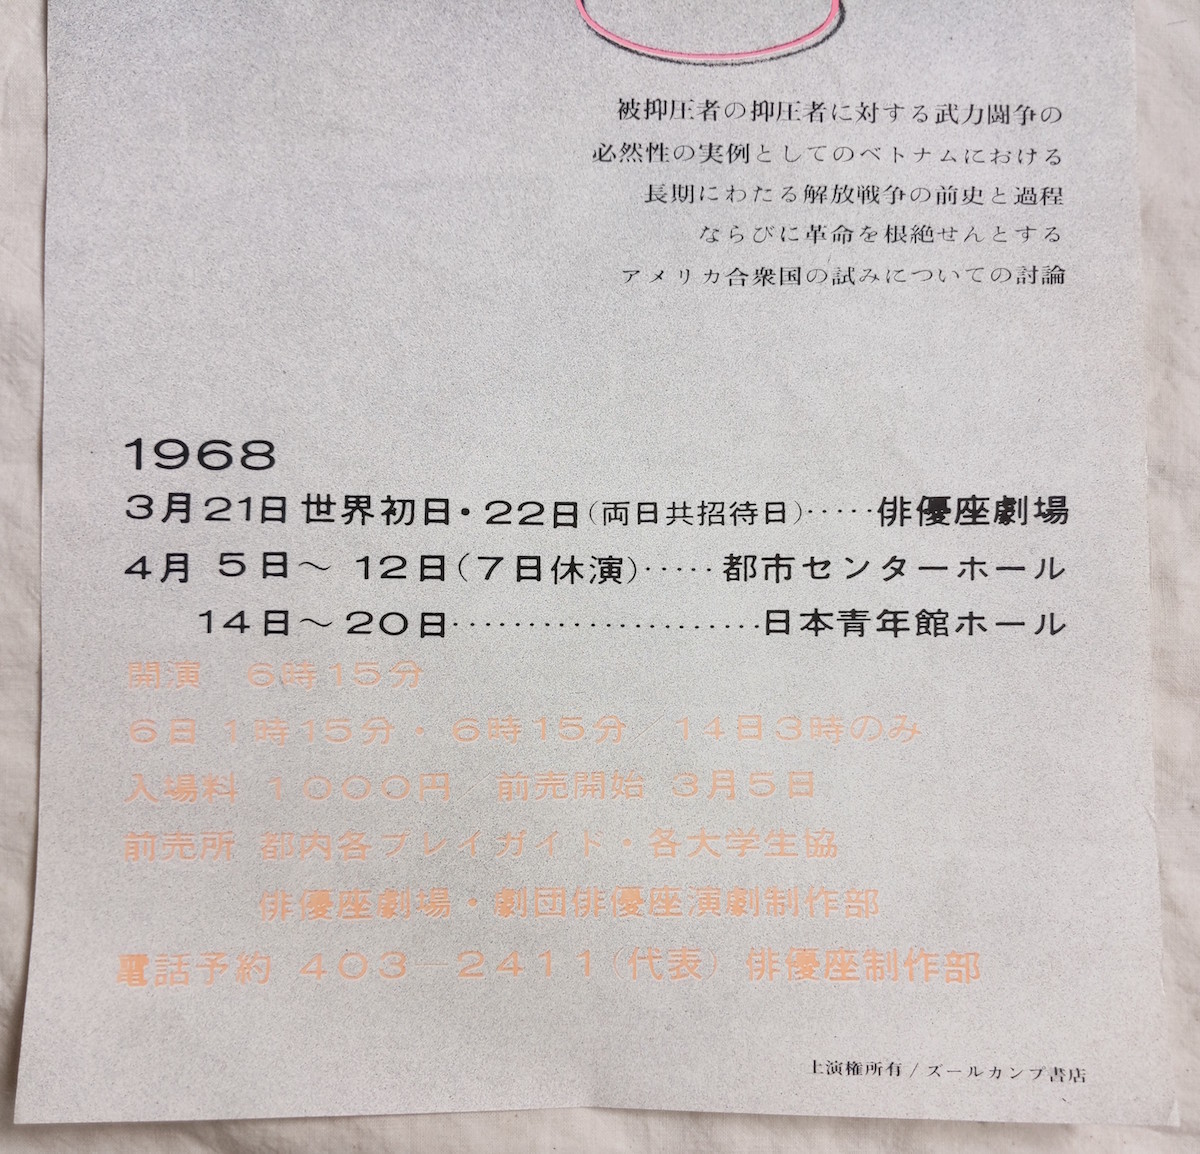 被抑圧者の抑圧者に対する武力闘争の
必然性の実例としてのベトナムにおける
長期にわたる解放戦争の前史と過程
ならびに革命を根絶せんとする
アメリカ合衆国の試みについての討論
1968
3月21日世界初日・22日(両日共招待日)·····俳優座劇場
4月 5日〜 12日(7日休演)·····都市センターホール
14日〜20日·····················日本青年館ホール
開演 6時15分
6日1時15分・6時15分/14日3時のみ
入場料 1000円/前売開始 3月5日
前売所 都内各プレイガイド・各大学生協
俳優座劇場・劇団俳優座演劇制作部
電話予約 403-2411(代表) 俳優座制作部
上演権所有/ズールカンプ書店